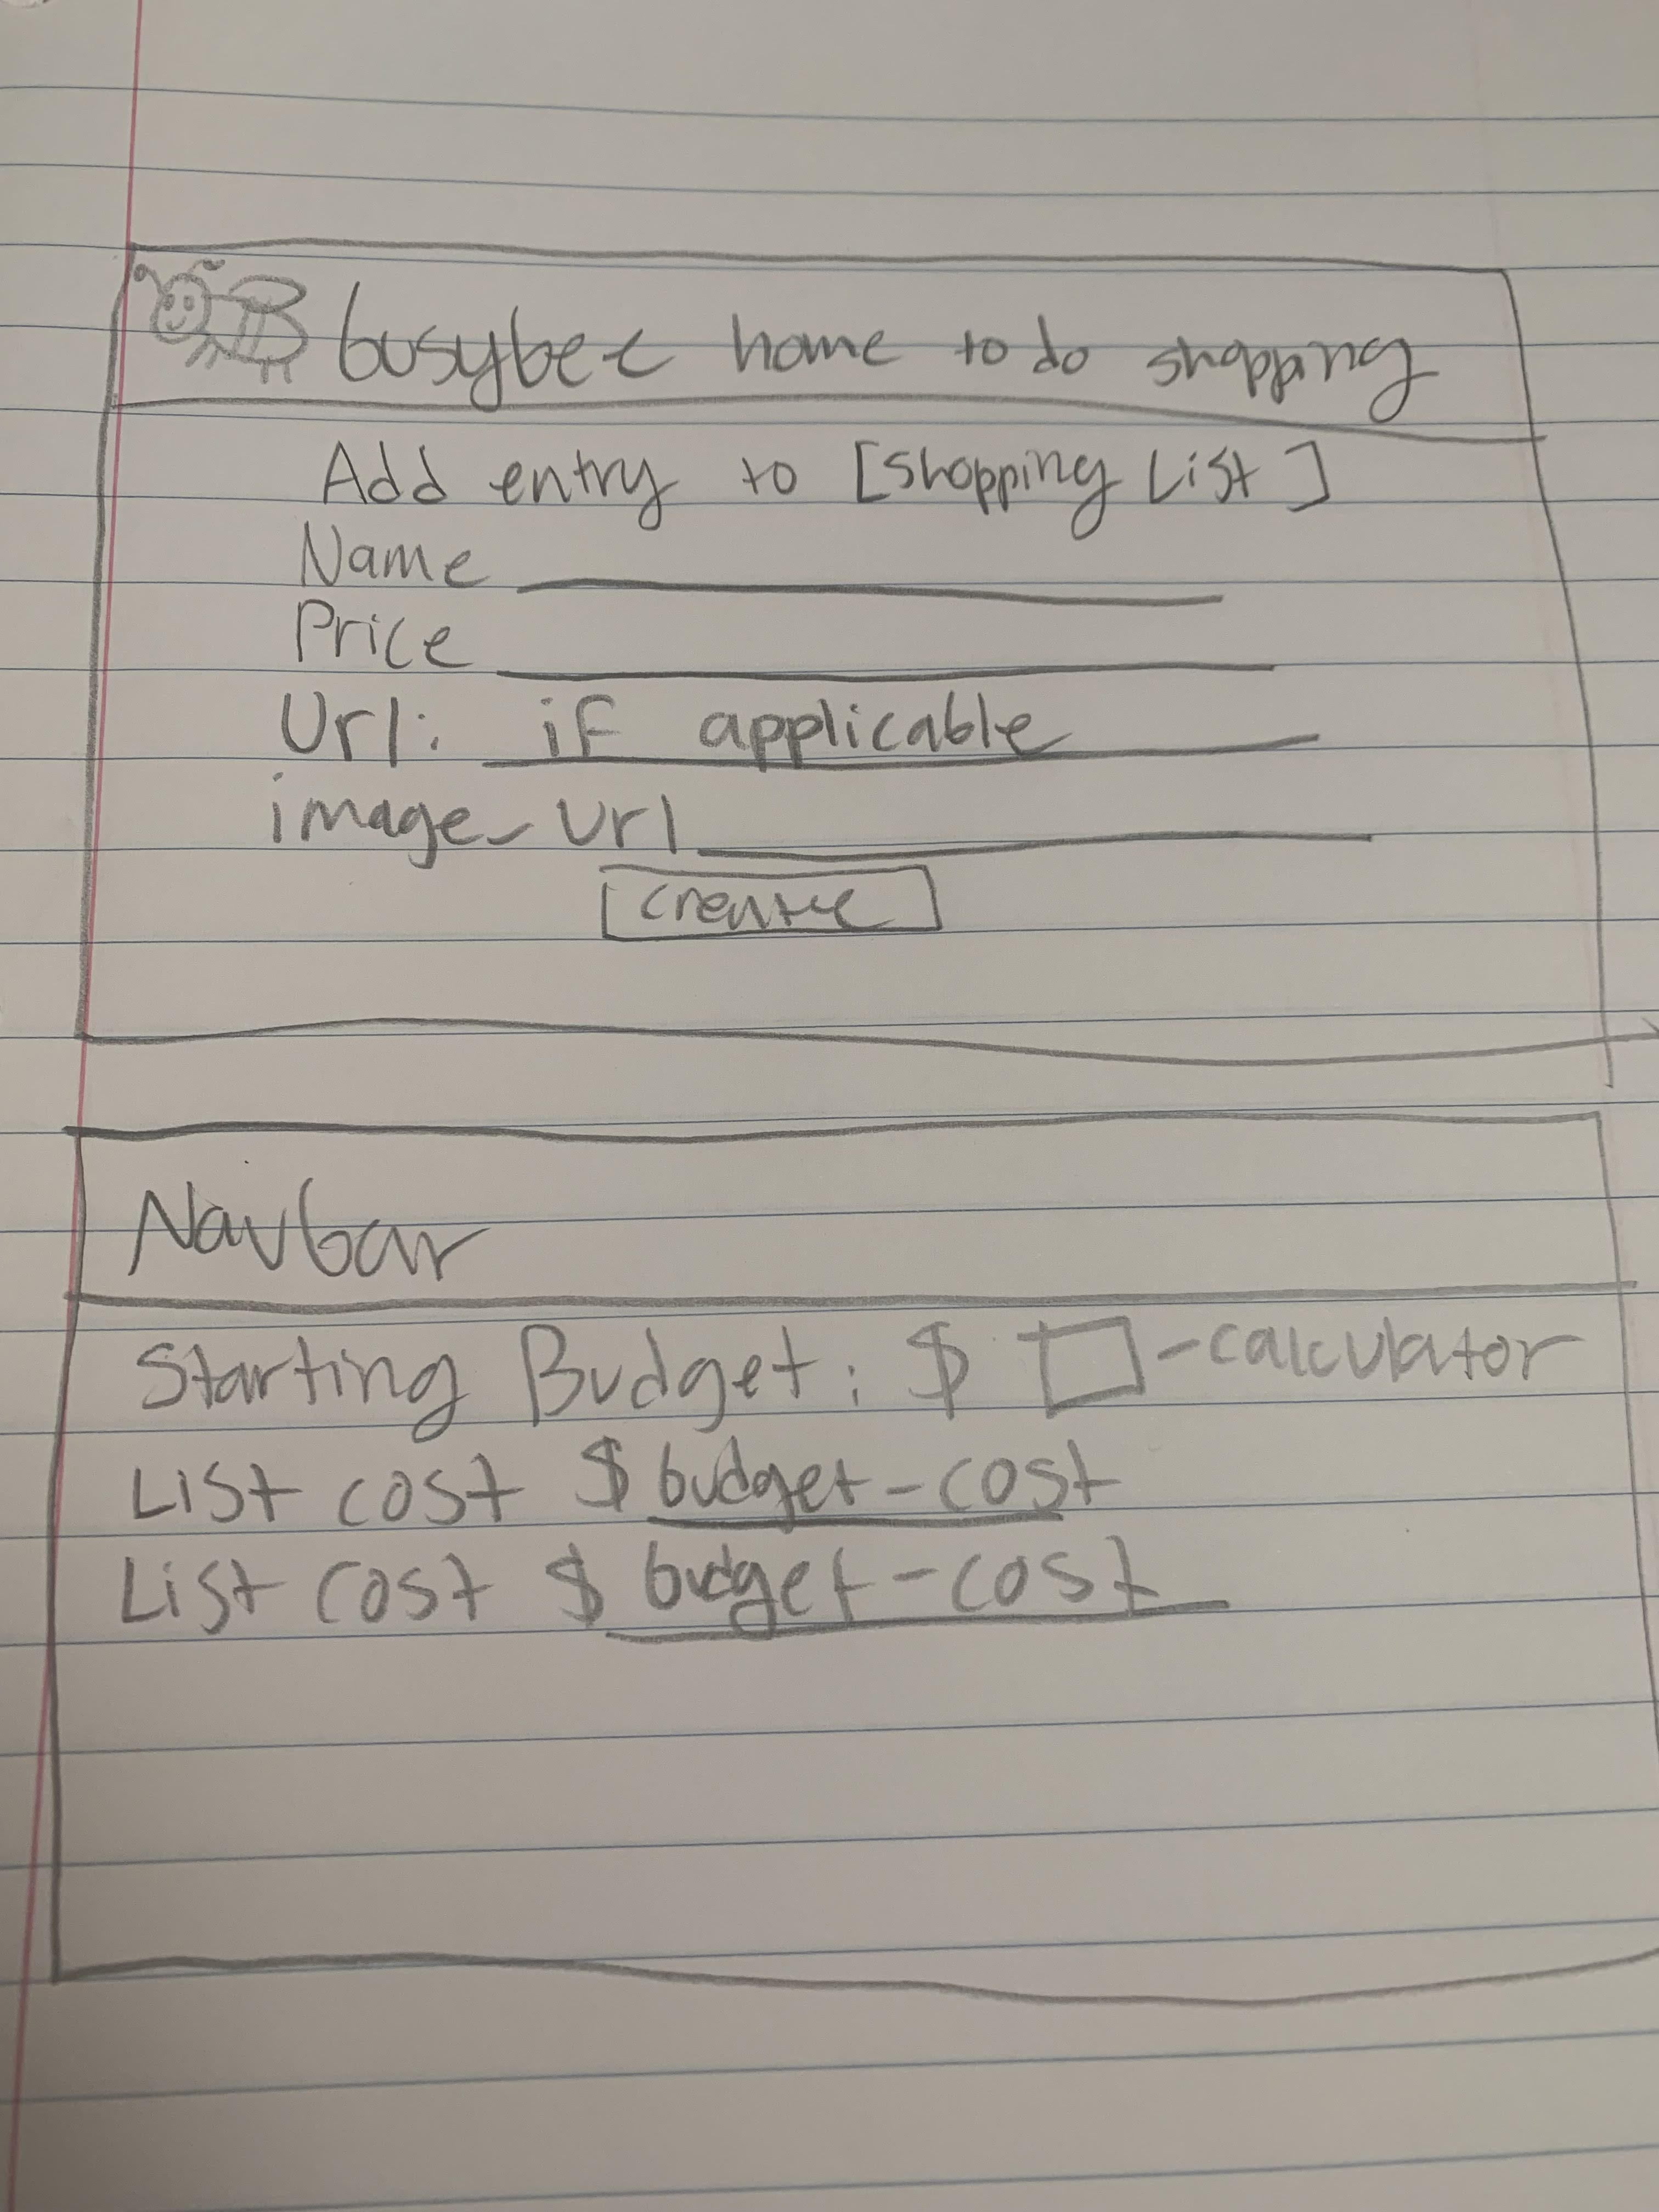 busybee home to do shopping
Add entry to [Shopping List]
Name
Price
Url: if applicable
image_url
create
Navbar
Starting Budget: $ -calculator
List cost $ budget-cost
List cost $ budget-cost